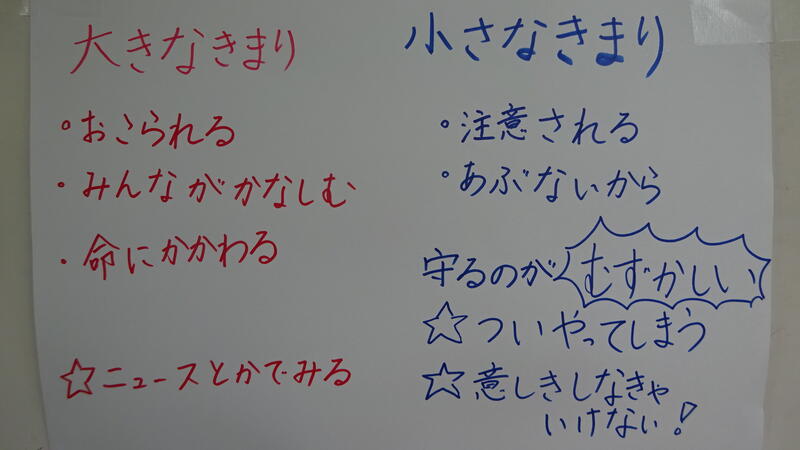 大きなきまり
・おこられる
・みんながかなしむ
・命にかかわる
☆ニュースとかでみる
小さなきまり
・注意される
・あぶないから
守るのがむずかしい
☆ついやってしまう
☆意しきしなきゃ
いけない!